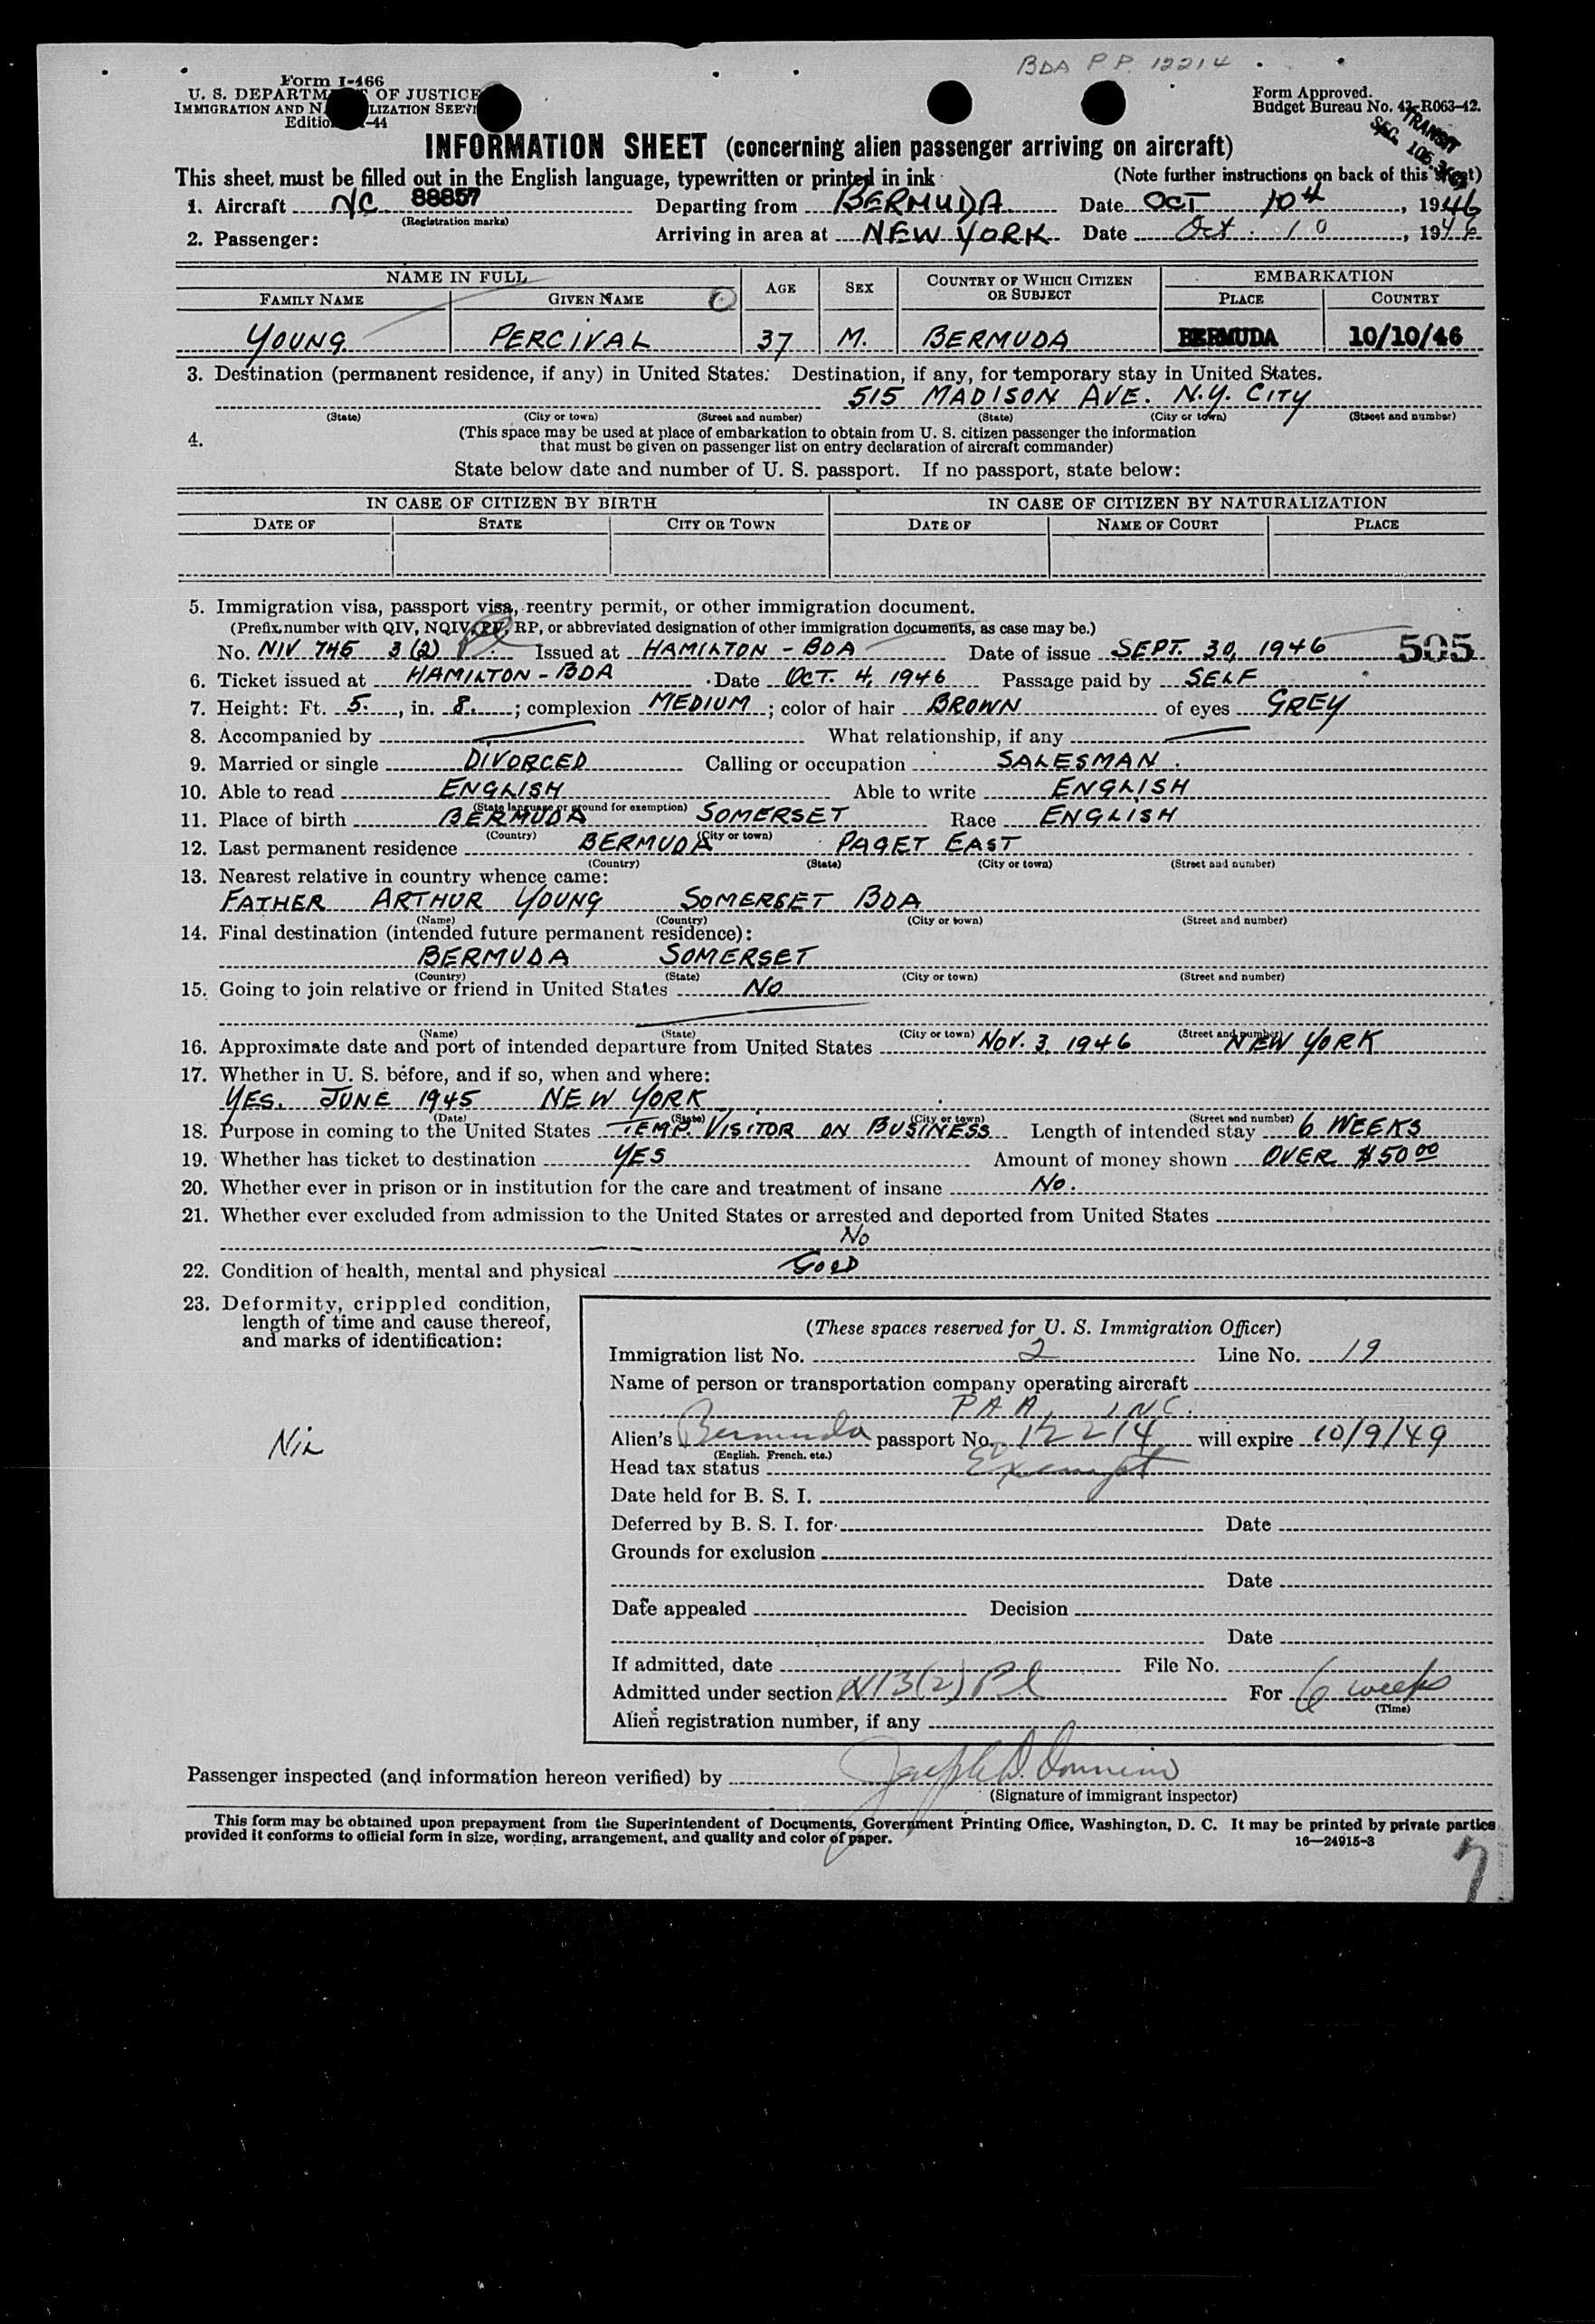 BDA P.P. 12214
Form I-466
U. S. DEPARTM OF JUSTICE
IMMIGRATION AND N LIZATION SERVI
Editio -44
Form Approved.
Budget Bureau No. 43-R063-42.
TRANSIT
SEC. 106.3
INFORMATION SHEET (concerning alien passenger arriving on aircraft)
This sheet must be filled out in the English language, typewritten or printed in ink (Note further instructions on back of this sheet)
1. Aircraft NC 88857 Departing from BERMUDA Date OCT 10th, 1946
(Registration marks)
2. Passenger: Arriving in area at NEW YORK Date Oct. 10, 1946
NAME IN FULL AGE SEX COUNTRY OF WHICH CITIZEN OR SUBJECT EMBARKATION
FAMILY NAME GIVEN NAME PLACE COUNTRY
YOUNG PERCIVAL 37 M. BERMUDA BERMUDA 10/10/46
3. Destination (permanent residence, if any) in United States: Destination, if any, for temporary stay in United States.
515 MADISON AVE. N.Y. CITY
(State) (City or town) (Street and number) (State) (City or town) (Street and number)
4. (This space may be used at place of embarkation to obtain from U. S. citizen passenger the information
that must be given on passenger list on entry declaration of aircraft commander)
State below date and number of U. S. passport. If no passport, state below:
IN CASE OF CITIZEN BY BIRTH IN CASE OF CITIZEN BY NATURALIZATION
DATE OF STATE CITY OR TOWN DATE OF NAME OF COURT PLACE
5. Immigration visa, passport visa, reentry permit, or other immigration document.
(Prefix number with QIV, NQIV, PV, RP, or abbreviated designation of other immigration documents, as case may be.)
No. NIV 745 3(2) Pl Issued at HAMILTON - BDA Date of issue SEPT. 30, 1946 505
6. Ticket issued at HAMILTON - BDA Date OCT. 4, 1946 Passage paid by SELF
7. Height: Ft. 5., in. 8.; complexion MEDIUM; color of hair BROWN of eyes GREY
8. Accompanied by — What relationship, if any —
9. Married or single DIVORCED Calling or occupation SALESMAN.
10. Able to read ENGLISH Able to write ENGLISH
(State language or ground for exemption)
11. Place of birth BERMUDA SOMERSET Race ENGLISH
(Country) (City or town)
12. Last permanent residence BERMUDA PAGET EAST
(Country) (State) (City or town) (Street and number)
13. Nearest relative in country whence came:
FATHER ARTHUR YOUNG SOMERSET BDA
(Name) (Country) (City or town) (Street and number)
14. Final destination (intended future permanent residence):
BERMUDA SOMERSET
(Country) (State) (City or town) (Street and number)
15. Going to join relative or friend in United States NO
(Name) (State) (City or town) (Street and number)
16. Approximate date and port of intended departure from United States NOV. 3, 1946 NEW YORK
17. Whether in U. S. before, and if so, when and where:
YES. JUNE 1945 NEW YORK
(Date) (State) (City or town) (Street and number)
18. Purpose in coming to the United States TEMP. VISITOR ON BUSINESS Length of intended stay 6 WEEKS
19. Whether has ticket to destination YES Amount of money shown OVER $50 00
20. Whether ever in prison or in institution for the care and treatment of insane NO.
21. Whether ever excluded from admission to the United States or arrested and deported from United States
NO
22. Condition of health, mental and physical GOOD
23. Deformity, crippled condition,
length of time and cause thereof,
and marks of identification:
NIL
(These spaces reserved for U. S. Immigration Officer)
Immigration list No. 2 Line No. 19
Name of person or transportation company operating aircraft
PAA, INC.
Alien's Bermuda passport No. 12214 will expire 10/9/49
(English, French, etc.)
Head tax status Exempt
Date held for B. S. I.
Deferred by B. S. I. for Date
Grounds for exclusion
Date
Date appealed Decision
Date
If admitted, date File No.
Admitted under section 3(2) Pl For 6 weeks
(Time)
Alien registration number, if any
Passenger inspected (and information hereon verified) by Joseph D.
(Signature of immigrant inspector)
This form may be obtained upon prepayment from the Superintendent of Documents, Government Printing Office, Washington, D. C. It may be printed by private parties
provided it conforms to official form in size, wording, arrangement, and quality and color of paper. 16—24915-3
7